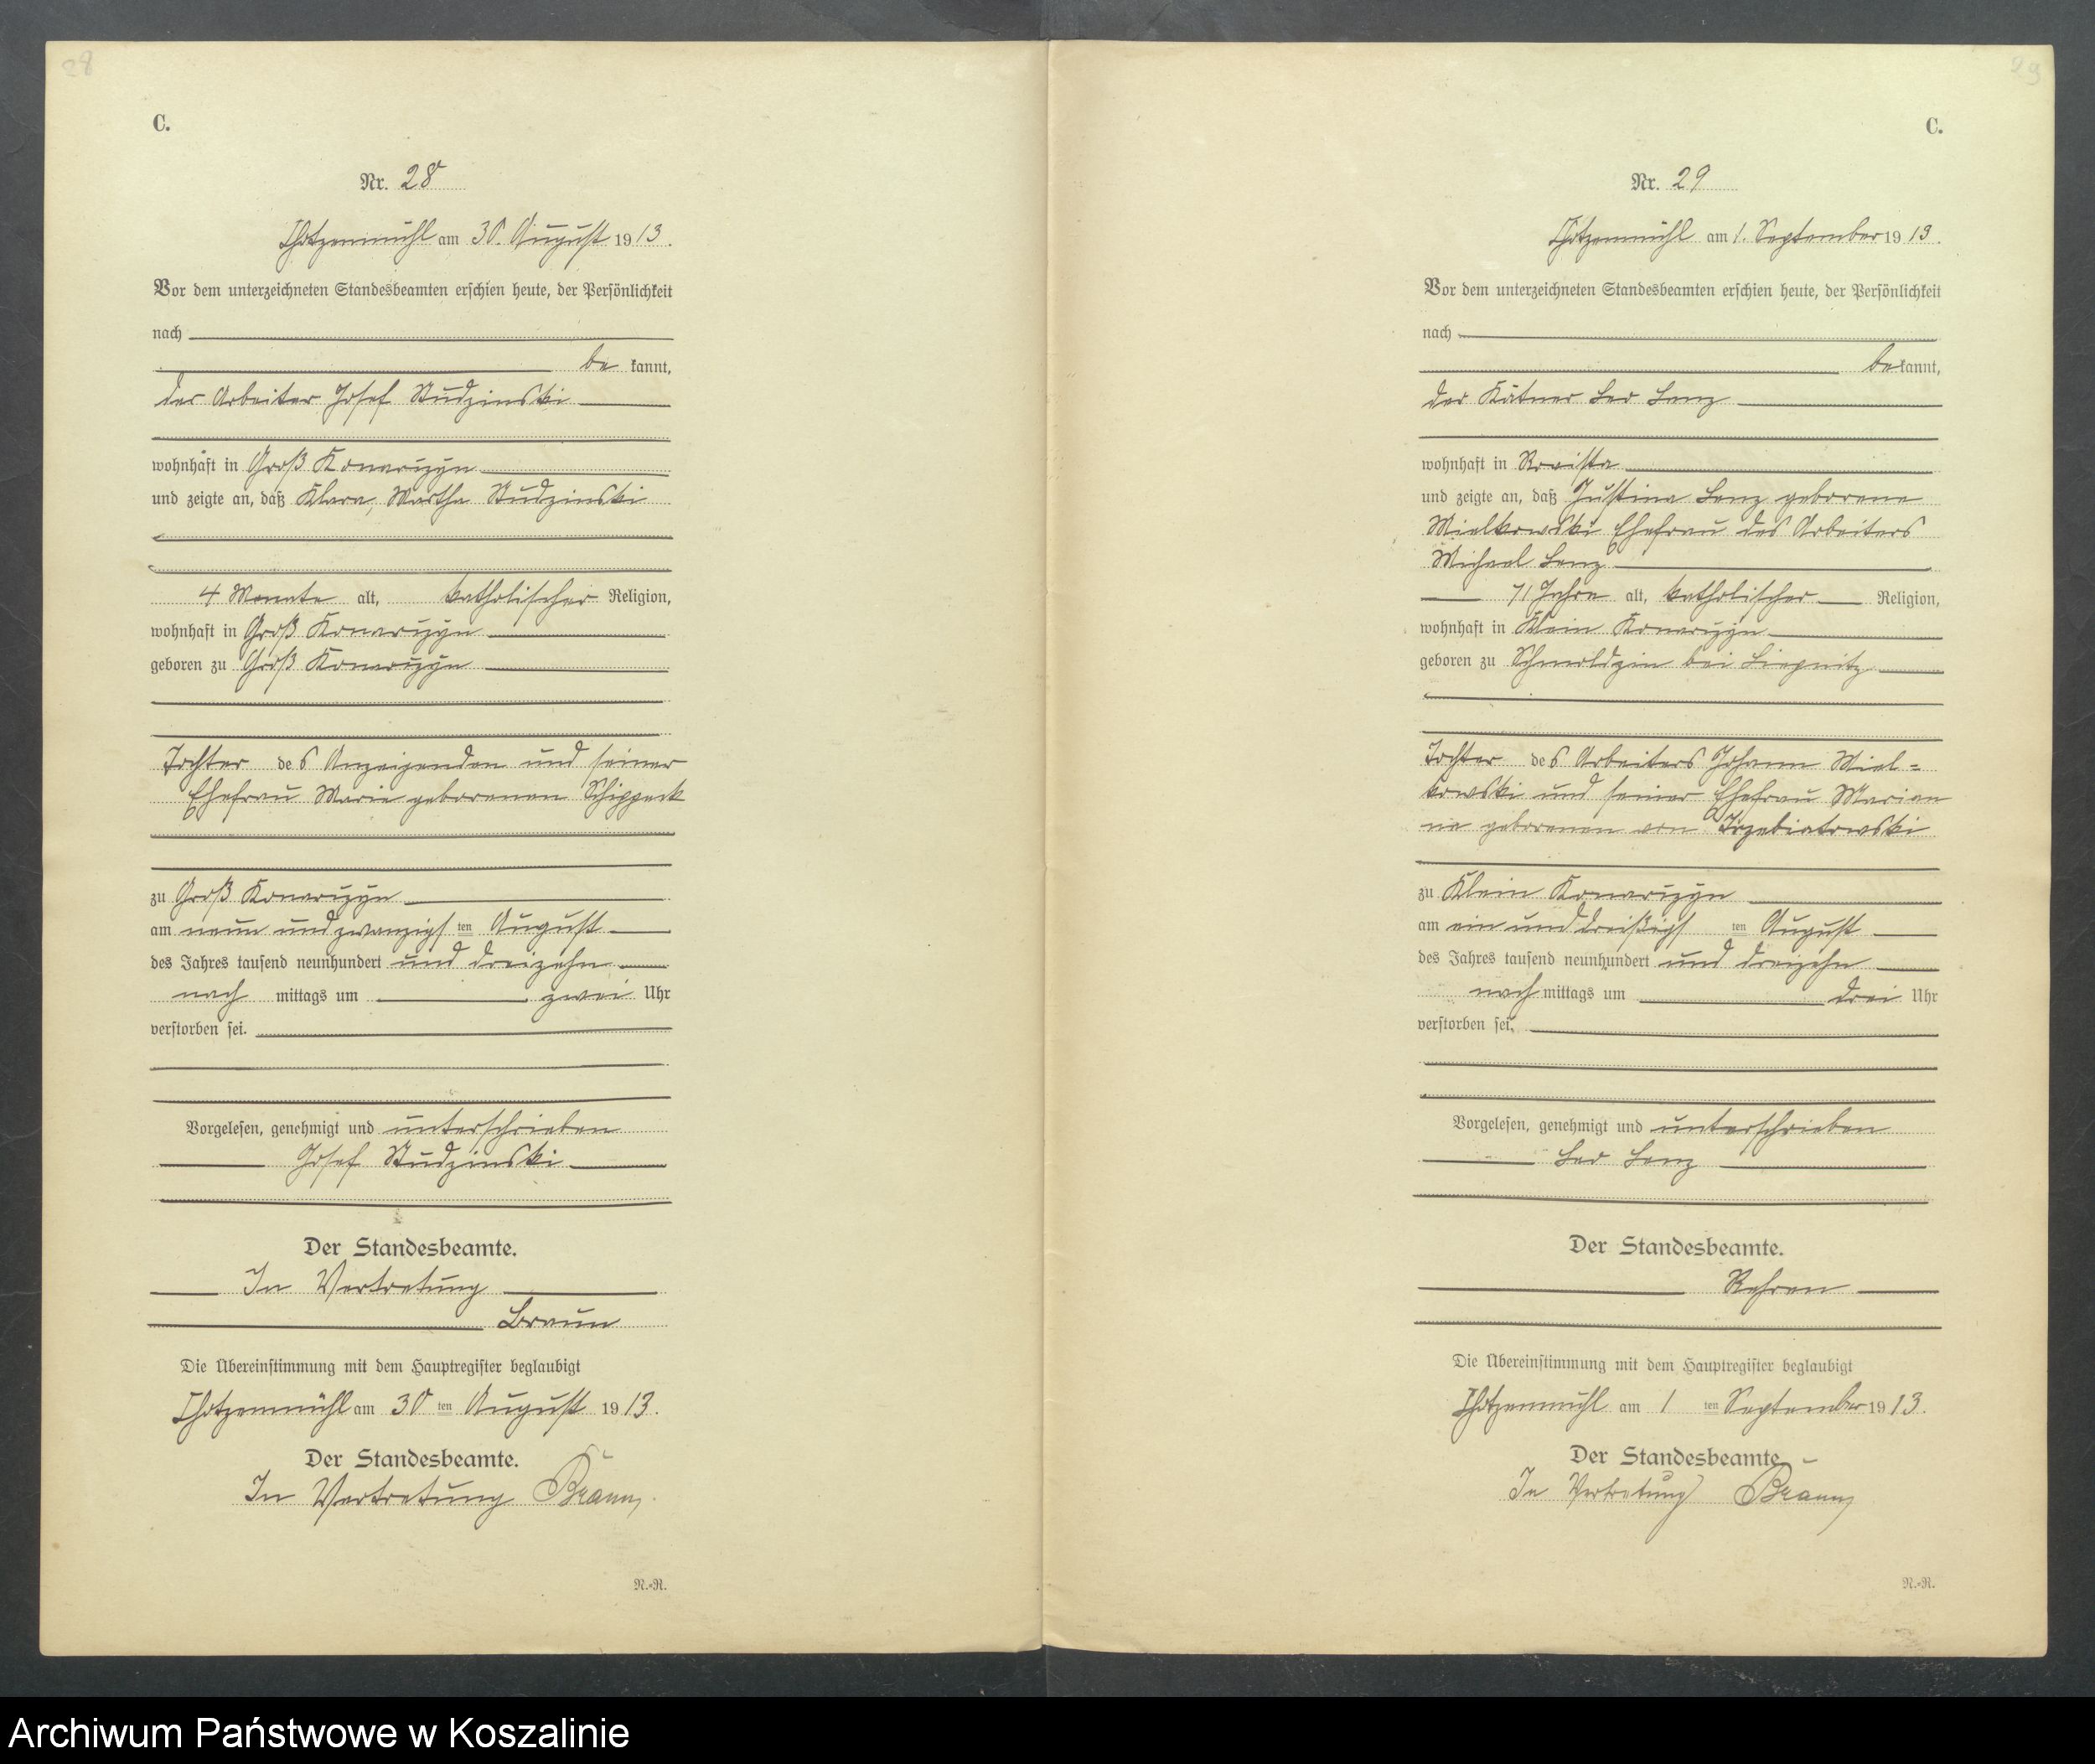 28
C.
Nr. 28
Chotzenmühl am 30. August 1913.
Vor dem unterzeichneten Standesbeamten erschien heute, der Persönlichkeit
nach
be kannt,
der Arbeiter Josef Studzinski
wohnhaft in Groß Konarzyn
und zeigte an, daß Klara, Martha Studzinski
4 Monate alt, katholischer Religion,
wohnhaft in Groß Konarzyn
geboren zu Groß Konarzyn
Tochter des Anzeigenden und seiner
Ehefrau Marie geborenen
zu Groß Konarzyn
am neun und zwanzigsten August
des Jahres tausend neunhundert und dreizehn
nach mittags um zwei Uhr
verstorben sei.
Vorgelesen, genehmigt und unterschrieben
Josef Studzinski
Der Standesbeamte.
In Vertretung
Braun
Die Übereinstimmung mit dem Hauptregister beglaubigt
Chotzenmühl am 30 ten August 1913.
Der Standesbeamte.
In Vertretung Braun
N.=N.
29
C.
Nr. 29
Chotzenmühl am 1. September 1913.
Vor dem unterzeichneten Standesbeamten erschien heute, der Persönlichkeit
nach
bekannt,
der Kätner Leo Lenz
wohnhaft in
und zeigte an, daß Justine Lenz geborene
Mielkowski Ehefrau des Arbeiters
Michael Lenz
71 Jahre alt, katholischer Religion,
wohnhaft in Klein Konarzyn
geboren zu Schmoldzin bei Liepnitz
Tochter des Arbeiters Johann Miel=
kowski und seiner Ehefrau Marian
ne geborenen von Trzebiatowski
zu Klein Konarzyn
am ein und dreißigsten August
des Jahres tausend neunhundert und dreizehn
nach mittags um drei Uhr
verstorben sei.
Vorgelesen, genehmigt und unterschrieben
Leo Lenz
Der Standesbeamte.
Rehren
Die Übereinstimmung mit dem Hauptregister beglaubigt
Chotzenmühl am 1 ten September 1913.
Der Standesbeamte
In Vertretung Braun
N.=N.
Archiwum Państwowe w Koszalinie